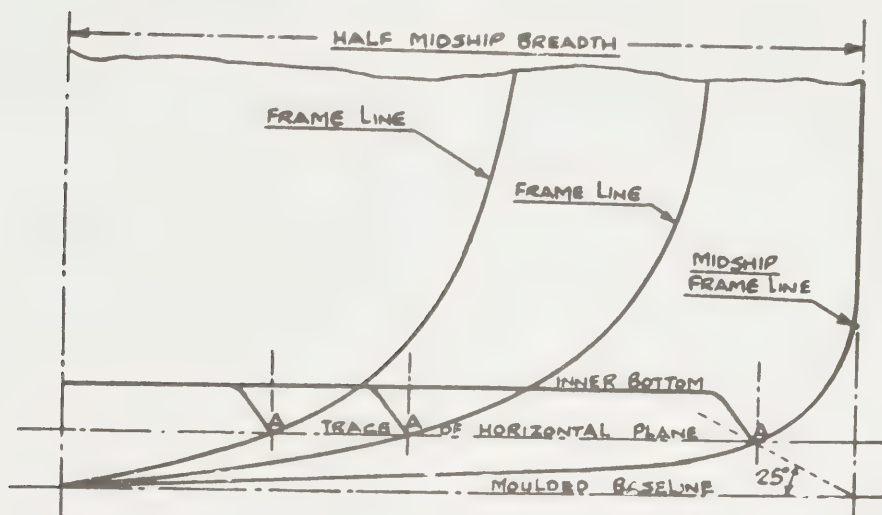 HALF MIDSHIP BREADTH
FRAME LINE
FRAME LINE
MIDSHIP
FRAME LINE
INNER BOTTOM
A
A
A
TRACE OF HORIZONTAL PLANE
25°
MOULDED BASELINE